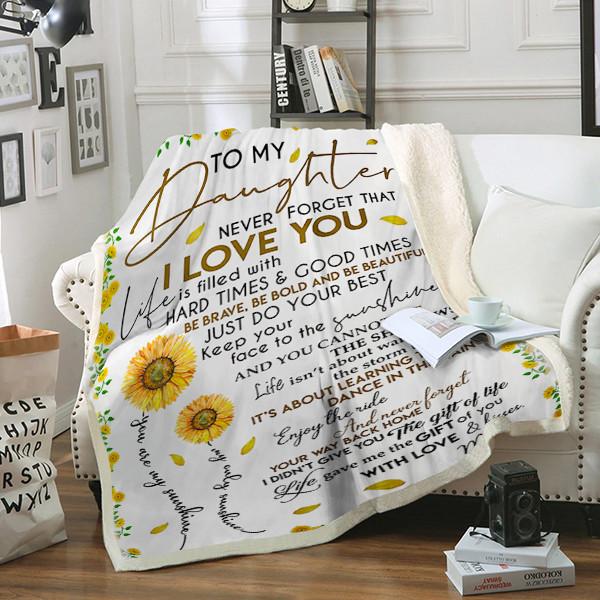 TO MY
Daughter
NEVER FORGET THAT
I LOVE YOU
Life is filled with
HARD TIMES & GOOD TIMES
BE BRAVE, BE BOLD AND BE BEAUTIFUL
JUST DO YOUR BEST
Keep your
face to the sunshine
AND YOU CANNOT
THE
Life isn't about
the storm
IT'S ABOUT LEARNING
DANCE IN THE
Enjoy the ride
And never forget
YOUR WAY BACK HOME
I DIDN'T GIVE YOU The gift of life
Life, gave me the GIFT of you
WITH LOVE &
You are my sunshine
my only sunshine
CENTURY
Dentro di te
E
CDE
STU
WXYZ
KOŁODKO